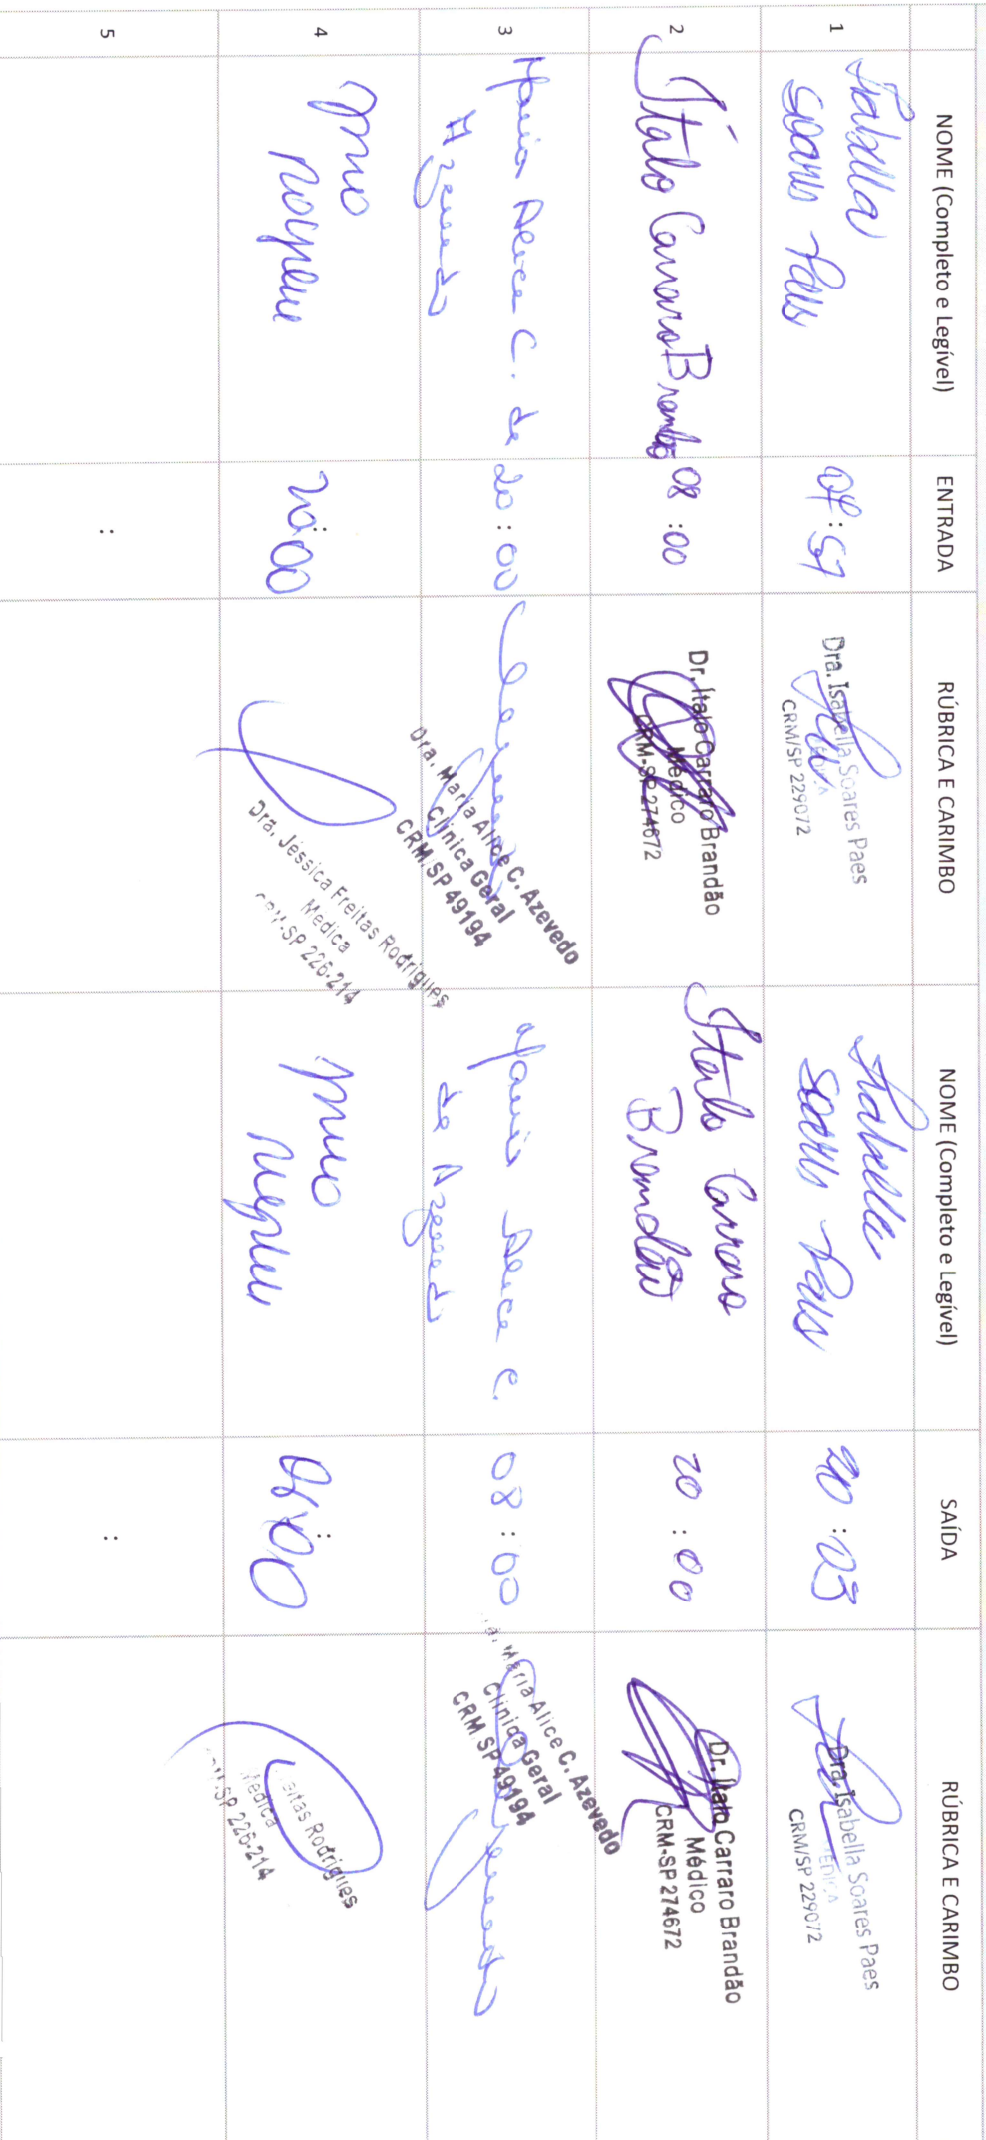 NOME (Completo e Legível) ENTRADA RÚBRICA E CARIMBO NOME (Completo e Legível) SAÍDA RÚBRICA E CARIMBO
1
Isabella
Soares Paes
07:57
Dra. Isabella Soares Paes
MÉDICA
CRM/SP 229072
Isabella
Soares Paes
20:03
Dra. Isabella Soares Paes
MÉDICA
CRM/SP 229072
2
Ítalo Carraro Brandão
08:00
Dr. Ítalo Carraro Brandão
Médico
CRM-SP 274672
Ítalo Carraro
Brandão
20:00
Dr. Ítalo Carraro Brandão
Médico
CRM-SP 274672
3
Maria Alice C. de
Azevedo
20:00
Dra. Maria Alice C. Azevedo
Clínica Geral
CRM SP 49194
Maria Alice C.
de Azevedo
08:00
a. Maria Alice C. Azevedo
Clínica Geral
CRM SP 49194
4
20:00
Dra. Jéssica Freitas Rodrigues
Médica
CRM-SP 226.214
08:00
eitas Rodrigues
Médica
SP 226.214
5
:
: